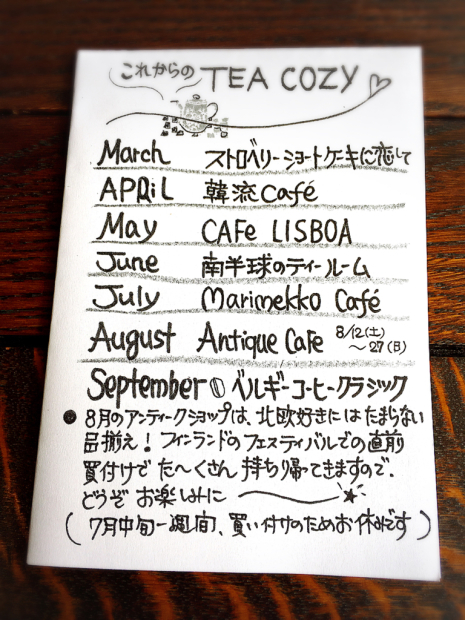 これからの TEA COZY
March ストロベリーショートケーキに恋して
APRiL 韓流Café
May CAFe LISBOA
June 南半球のティールーム
July Marimekko Café
August Antique Cafe 8/12(土)～27(日)
September ベルギーコーヒークラシック
● 8月のアンティークショップは、北欧好きにはたまらない
品揃え！フィンランドのフェスティバルでの直前
買付けで た〜くさん 持ち帰ってきますので.
どうぞ お楽しみに
(7月中旬一週間、買い付けのためお休みです)